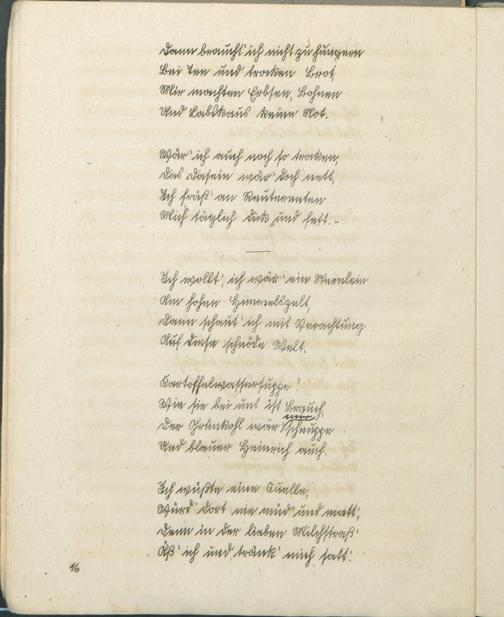 Dann braucht' ich nicht zu hungern
Bei Tee und trocken Brot,
Mir machten Erbsen, Bohnen
Und Labskaus keine Not.
Wär' ich auch noch so trocken,
Das Dasein wär' doch nett,
Ich fräß' an Reuterenten
Mich täglich dick und fett. -
Ich wollt', ich wär' ein Sternlein
Am hohen Himmelszelt,
Dann schaut' ich mit Verachtung
Auf diese schnöde Welt.
Kartoffelwassersuppe!
Wie sie bei uns ist Brauch,
Der Grünkohl wär' mir schnuppe
Und blauer Heinrich auch.
Ich wüßte eine Quelle,
Würd' dort nie müd' und matt,
Denn in der lieben Milchstraß'
Äß' ich und tränk' mich satt.
16